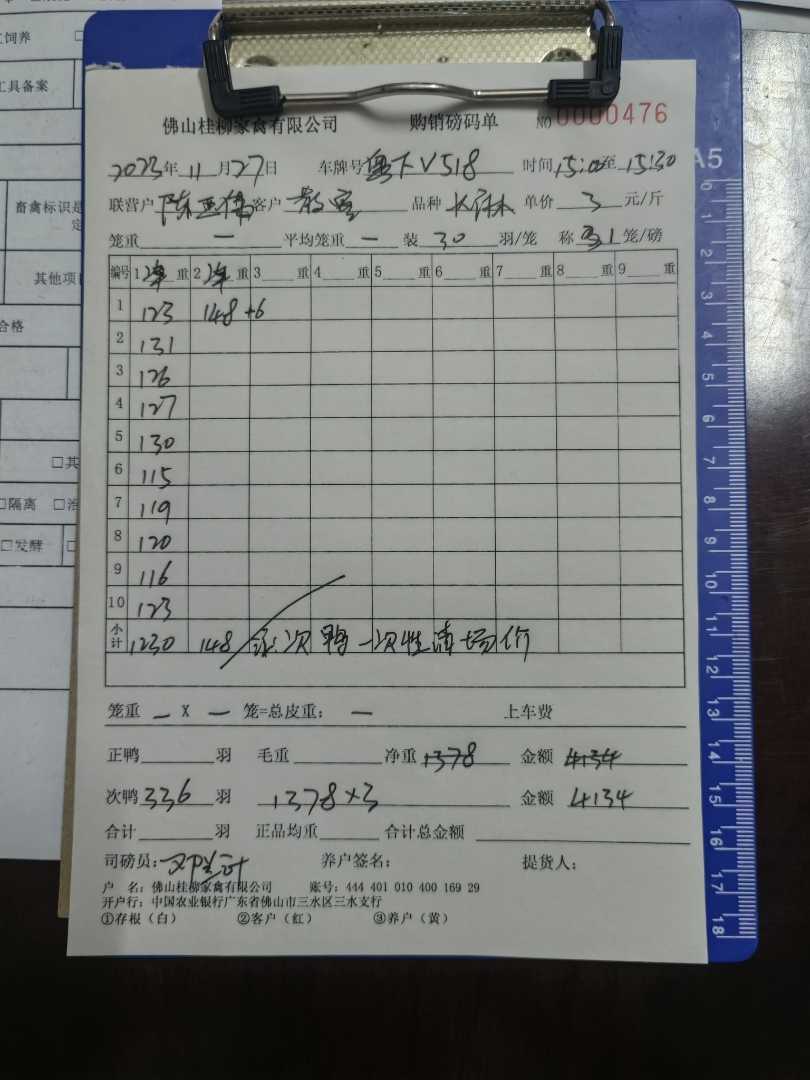 饲养
工具备案
畜禽标识是
定
其他项
合格
□其
□隔离 □治
□发酵
A5
佛山桂柳家禽有限公司 购销磅码单 NO 0000476
2023年11月27日 车牌号 V518 时间15:00至15:30
联营户 陈 客户 散客 品种 单价 3 元/斤
笼重 — 平均笼重 — 装 30 羽/笼 称 1 笼/磅
编号 1 重 2 重 3 重 4 重 5 重 6 重 7 重 8 重 9 重
1 123 148+6
2 131
3 126
4 127
5 130
6 115
7 119
8 120
9 116
10 123
小计 1230 148 次鸭一次性清场价
笼重 — X — 笼=总皮重: — 上车费
正鸭 羽 毛重 净重 1378 金额 4134
次鸭 336 羽 1378×3 金额 4134
合计 羽 正品均重 合计总金额
司磅员: 养户签名: 提货人:
户 名: 佛山桂柳家禽有限公司 账号: 444 401 010 400 169 29
开户行: 中国农业银行广东省佛山市三水区三水支行
①存根(白) ②客户(红) ③养户(黄)
0
1
2
3
4
5
6
7
8
9
10
11
12
13
14
15
16
17
18